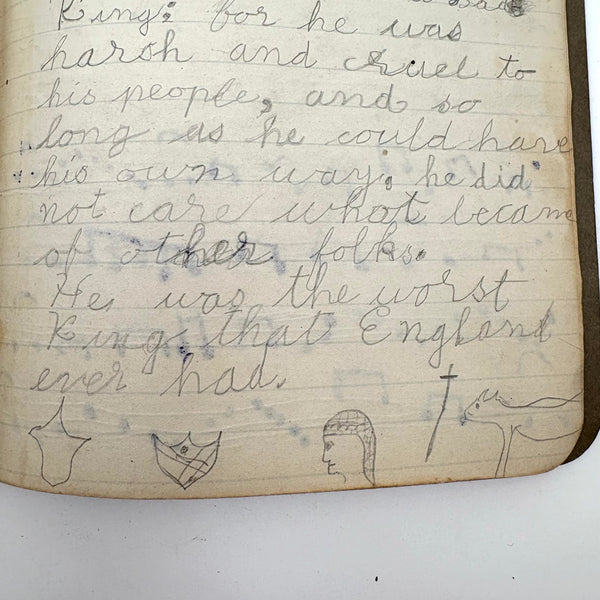 King: for he was
harsh and cruel to
his people, and so
long as he could have
his own way; he did
not care what became
of other folks.
He was the worst
King that England
ever had.